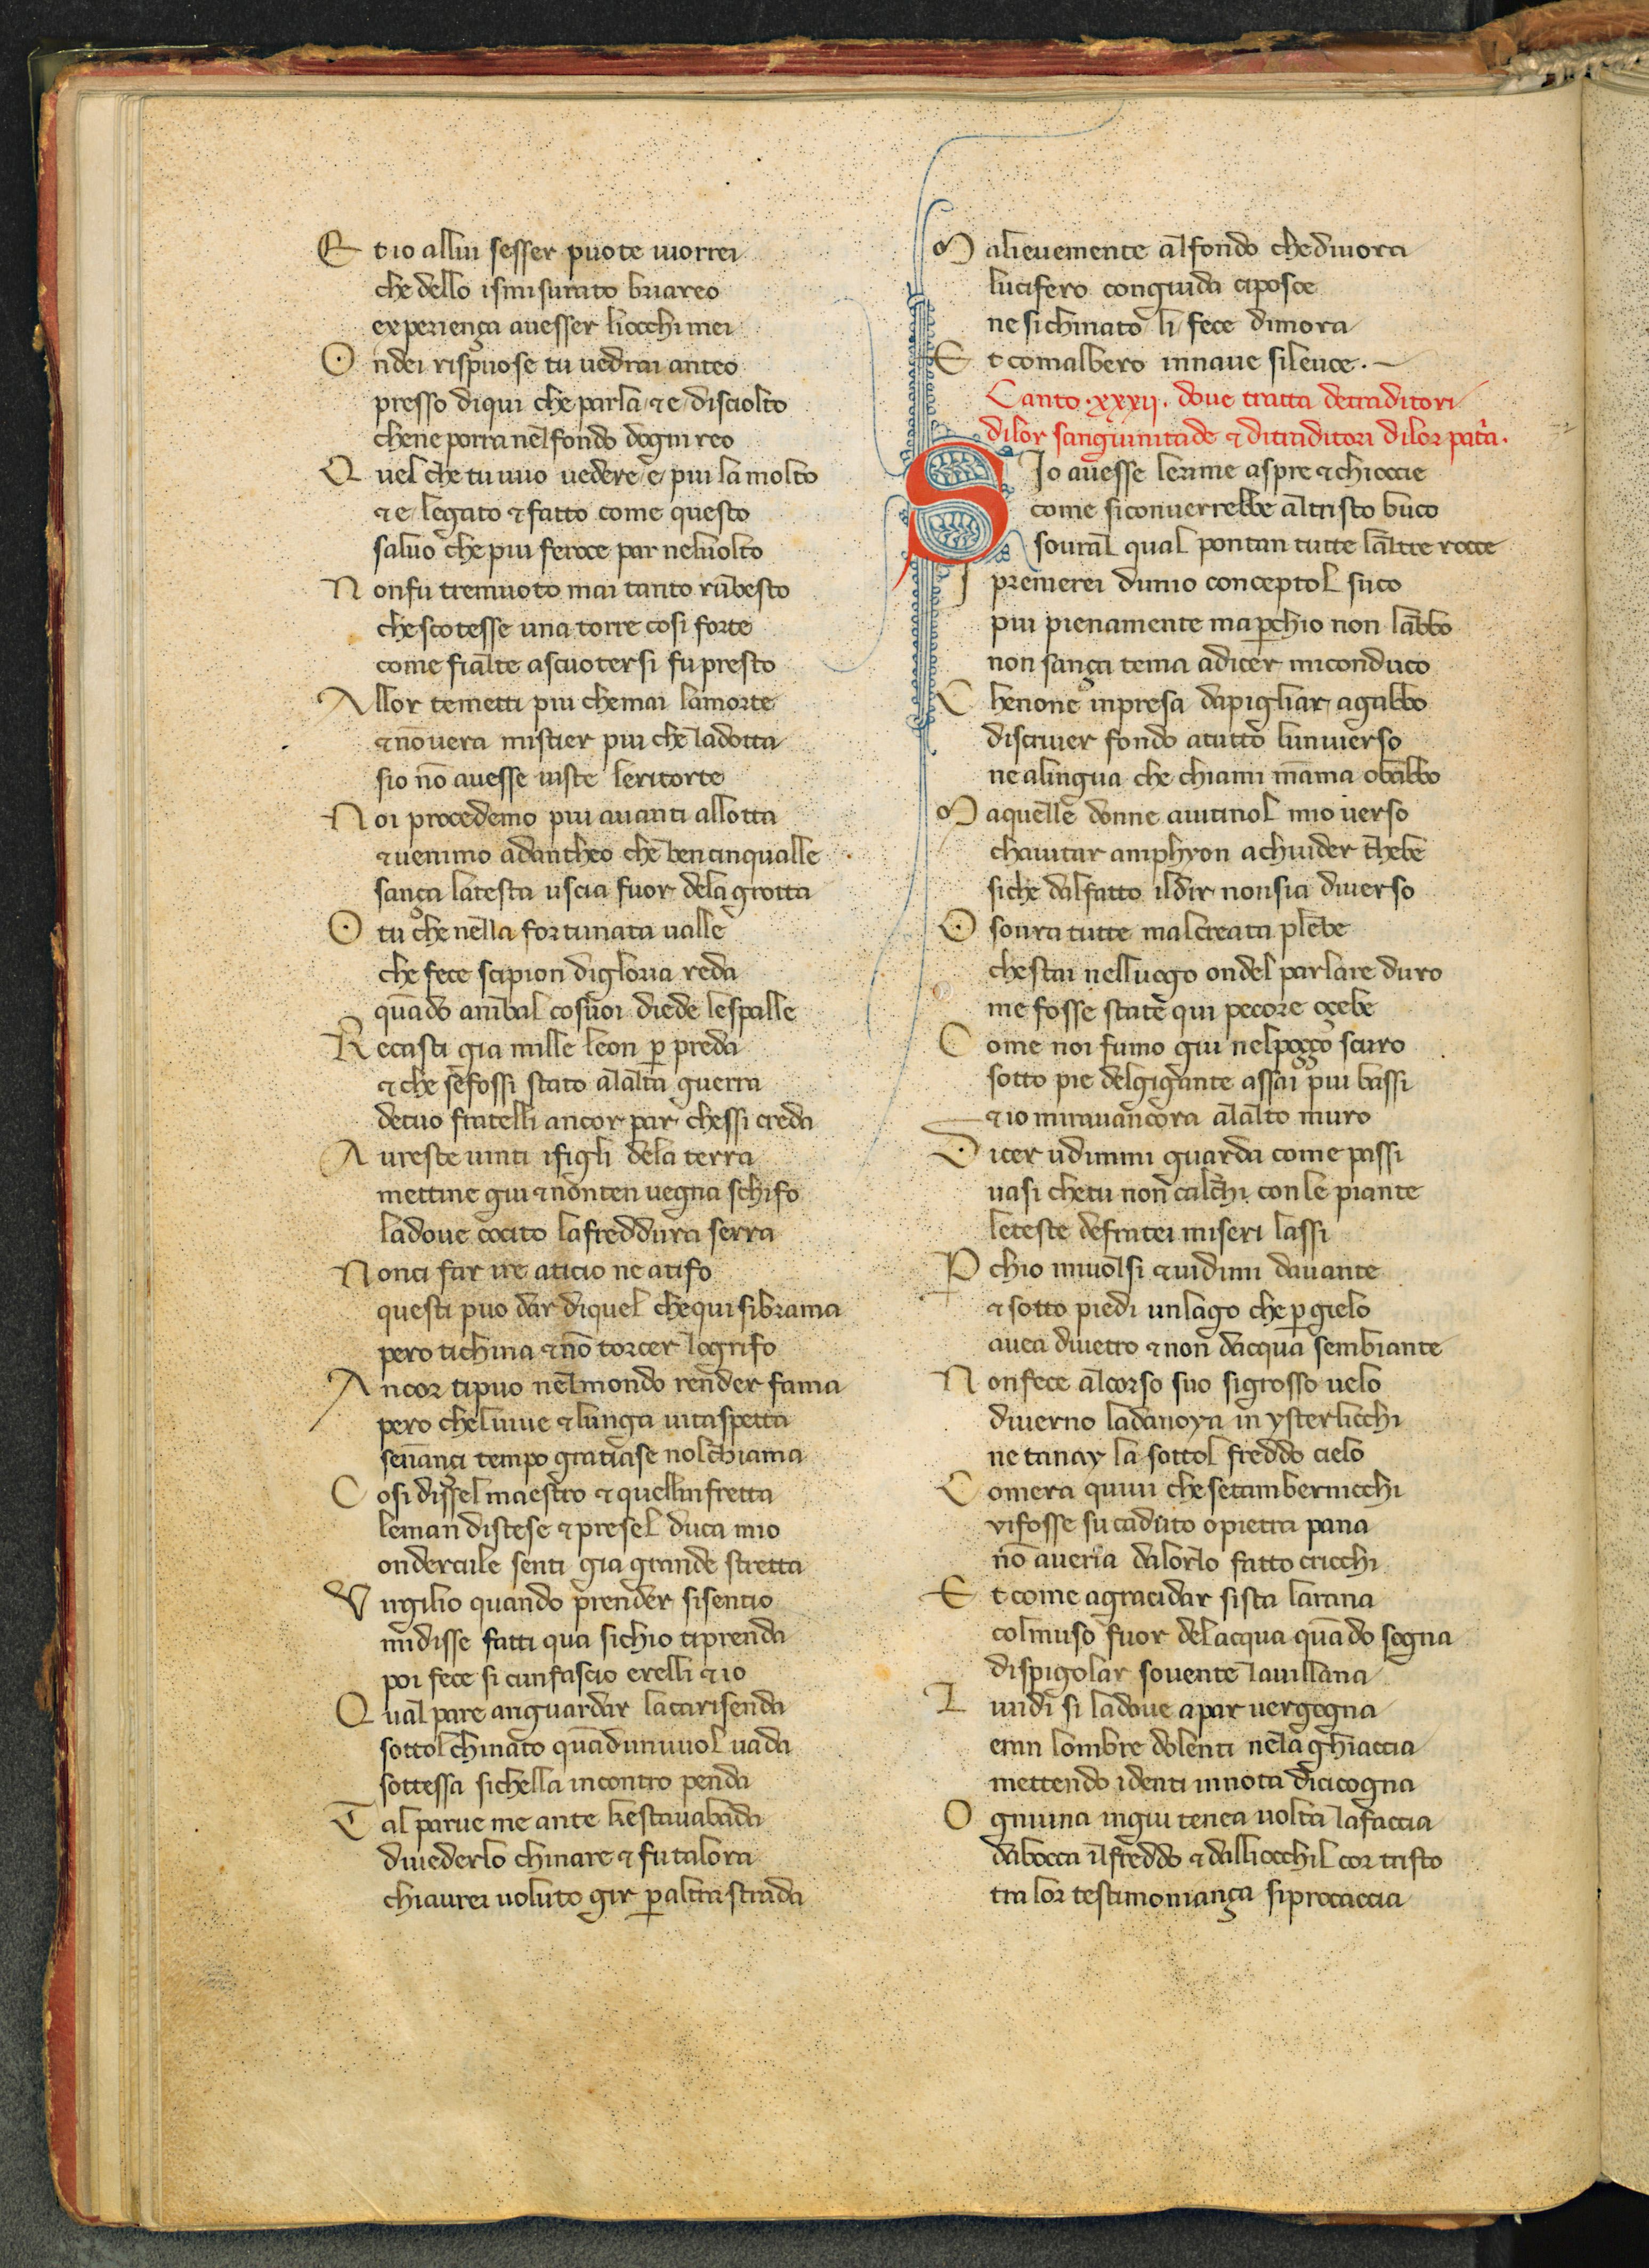 Et io allui sesser puote uorrei
che dello ismisurato briareo
experiença auesser liocchi mei
Ondei rispuose tu uedrai anteo
presso diqui che parla ⁊ e disciolto
chene porra nel fondo dogni reo
Quel che tu uuo uedere e piu la molto
⁊ e legato ⁊ fatto come questo
saluo che piu feroce par neluolto
Nonfu tremuoto mai tanto rūbesto
che scotesse una torre cosi forte
come fialte ascuotersi fu presto
Allor temetti piu chemai lamorte
⁊ nōuera mistier piu che ladotta
sio nō auesse uiste leritorte
Noi procedemo piu auanti allotta
⁊ uenimo adantheo che ben cinqualle
sança latesta uscia fuor dela grotta
O tu che nella fortunata ualle
che fece scipion digloria reda
quādo anibal cosuoi diede lespalle
Recasti gia mille leon ꝑ preda
⁊ che sefossi stato alalta guerra
detuo fratelli ancor par chessi creda
Aureste uinti ifigli dela terra
mettine giu ⁊ nonten uegna schifo
ladoue cocito lafreddura serra
Nonci far ire aticio ne atifo
questi puo dar diquel chequi sibrama
pero tichina ⁊ nō torcer logrifo
Ancor tipuo nel mondo render fama
pero cheluiue ⁊ lunga uitaspetta
sennançi tempo gratiase nolchiama
Cosi dissel maestro ⁊ quellinfretta
leman distese ⁊ presel duca mio
ondercule senti gia grande stretta
Virgilio quando prender sisentio
mi disse fatti qua sichio tiprenda
poi fece si cunfascio erelli ⁊ io
Qual pare ariguardar lacarisenda
sottol chinato quādunuuol uada
sottessa sichella incontro penda
Tal parue me ante kestauabada
diuederlo chinare ⁊ fu talora
chiaurei uoluto gir ꝑ altra strada
Malieuemente alfondo chediuora
lucifero conguida ciposce
ne sichinato li fece dimora
Et comalbero innaue sileuce.
Canto .xxxij. doue tratta detraditori
dilor sanguinitade ⁊ ditraditori dilor patria.
SIo auesse lerime aspre ⁊ chioccie
come siconuerrebbe altristo buco
soural qual pontan tutte laltre rocce
I premerei dimio conceptol suco
piu pienamente ma ꝑchio non labbo
non sança tema adicer miconduco
Chenone inpresa dapigliar agabbo
discriuer fondo atutto luniuerso
ne alingua che chiami māma obabbo
Maquelle donne aiutinol mio uerso
chaiutar amphyon achiuder thebe
siche dalfatto ildir nonsia diuerso
O soura tutte malcreata plebe
chestai nelluogo ondel parlare duro
me foste state qui pecore oçebe
Come noi fumo giu nelpoçço scuro
sotto pie delgigante assai piu bassi
⁊ io mirauancora alalto muro
Dicer udimmi guarda come passi
uasi chetu non calchi con le piante
leteste defratei miseri lassi
Pchio miuolsi ⁊ uidimi dauante
⁊ sotto piedi unlago che ꝑ gielo
auea diuetro ⁊ non dacqua sembiante
Nonfece alcorso suo sigrosso uelo
diuerno ladanoya in ysterlicchi
ne tanay la sottol freddo cielo
Comera quiui che setambernicchi
vifosse su caduto o pietra pana
nō aueria dalorlo fatto cricchi
Et come agracidar sista larana
colmuso fuor delacqua quādo sogna
dispigolar souente lauillana
Liuidi si ladoue apar uergogna
eran lombre dolenti nela ghiaccia
mettendo identi innota dicicogna
Ogniuna ingiu tenea uolta lafaccia
dabocca ilfreddo ⁊ dalliocchil cor tristo
tra lor testimoniança siprocaccia